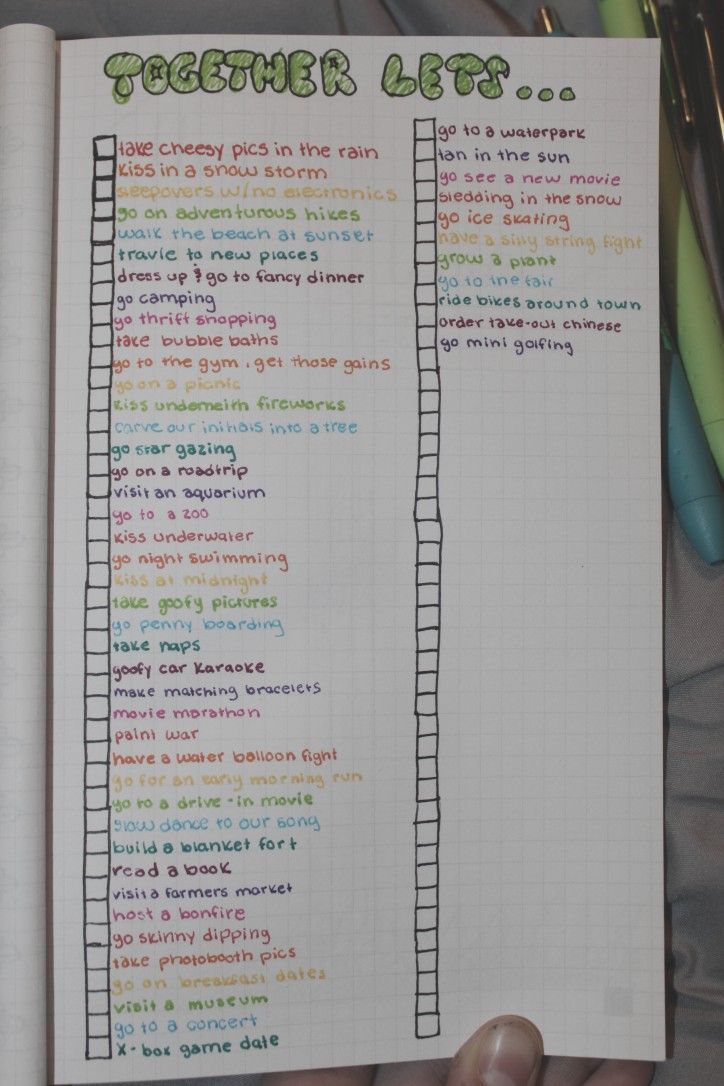 TOGETHER LETS...
take cheesy pics in the rain
kiss in a snow storm
sleepovers w/no electronics
go on adventurous hikes
walk the beach at sunset
travle to new places
dress up & go to fancy dinner
go camping
go thrift shopping
take bubble baths
go to the gym, get those gains
go on a picnic
kiss underneith fireworks
carve our initials into a tree
go star gazing
go on a roadtrip
visit an aquarium
go to a zoo
kiss underwater
go night swimming
kiss at midnight
take goofy pictures
go penny boarding
take naps
goofy car karaoke
make matching bracelets
movie marathon
paint war
have a water balloon fight
go for an early morning run
go to a drive-in movie
slow dance to our song
build a blanket fort
read a book
visit a farmers market
host a bonfire
go skinny dipping
take photobooth pics
go on breakfast dates
visit a museum
go to a concert
x-box game date
go to a waterpark
tan in the sun
go see a new movie
sledding in the snow
go ice skating
have a silly string fight
grow a plant
go to the fair
ride bikes around town
order take-out chinese
go mini golfing